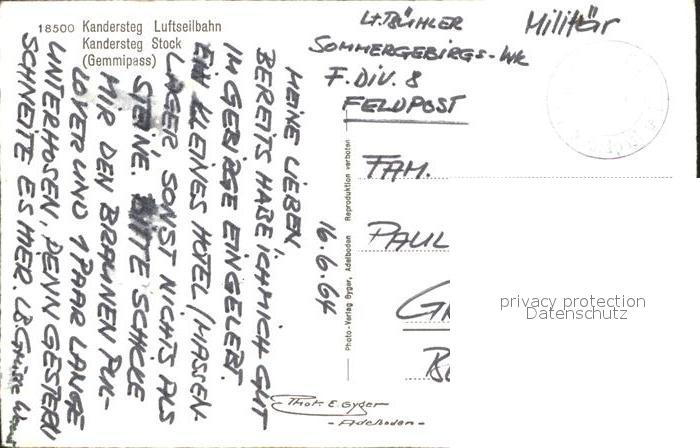 18500 Kandersteg Luftseilbahn
Kandersteg Stock
(Gemmipass)
MEINE LIEBEN,
BEREITS HABE ICH MICH GUT
IM GEBIRGE EINGELEBT.
EIN KLEINES HOTEL (MASSEN-
LAGER, SONST NICHTS ALS
STEINE. BITTE SCHICKE
MIR DEN BRAUNEN PUL-
LOVER UND 1 PAAR LANGE
UNTERHOSEN, DENN GESTERN
SCHNEITE ES HIER. LB. GRÜSSE
16.6.64
Photo-Verlag Gyger, Adelboden Reproduktion verboten
LT. BÜHLER
SOMMERGEBIRGS-WK
F. DIV. 8
FELDPOST
Militär
FAM.
PAUL
privacy protection
Datenschutz
Phot. E. Gyger
- Adelboden -